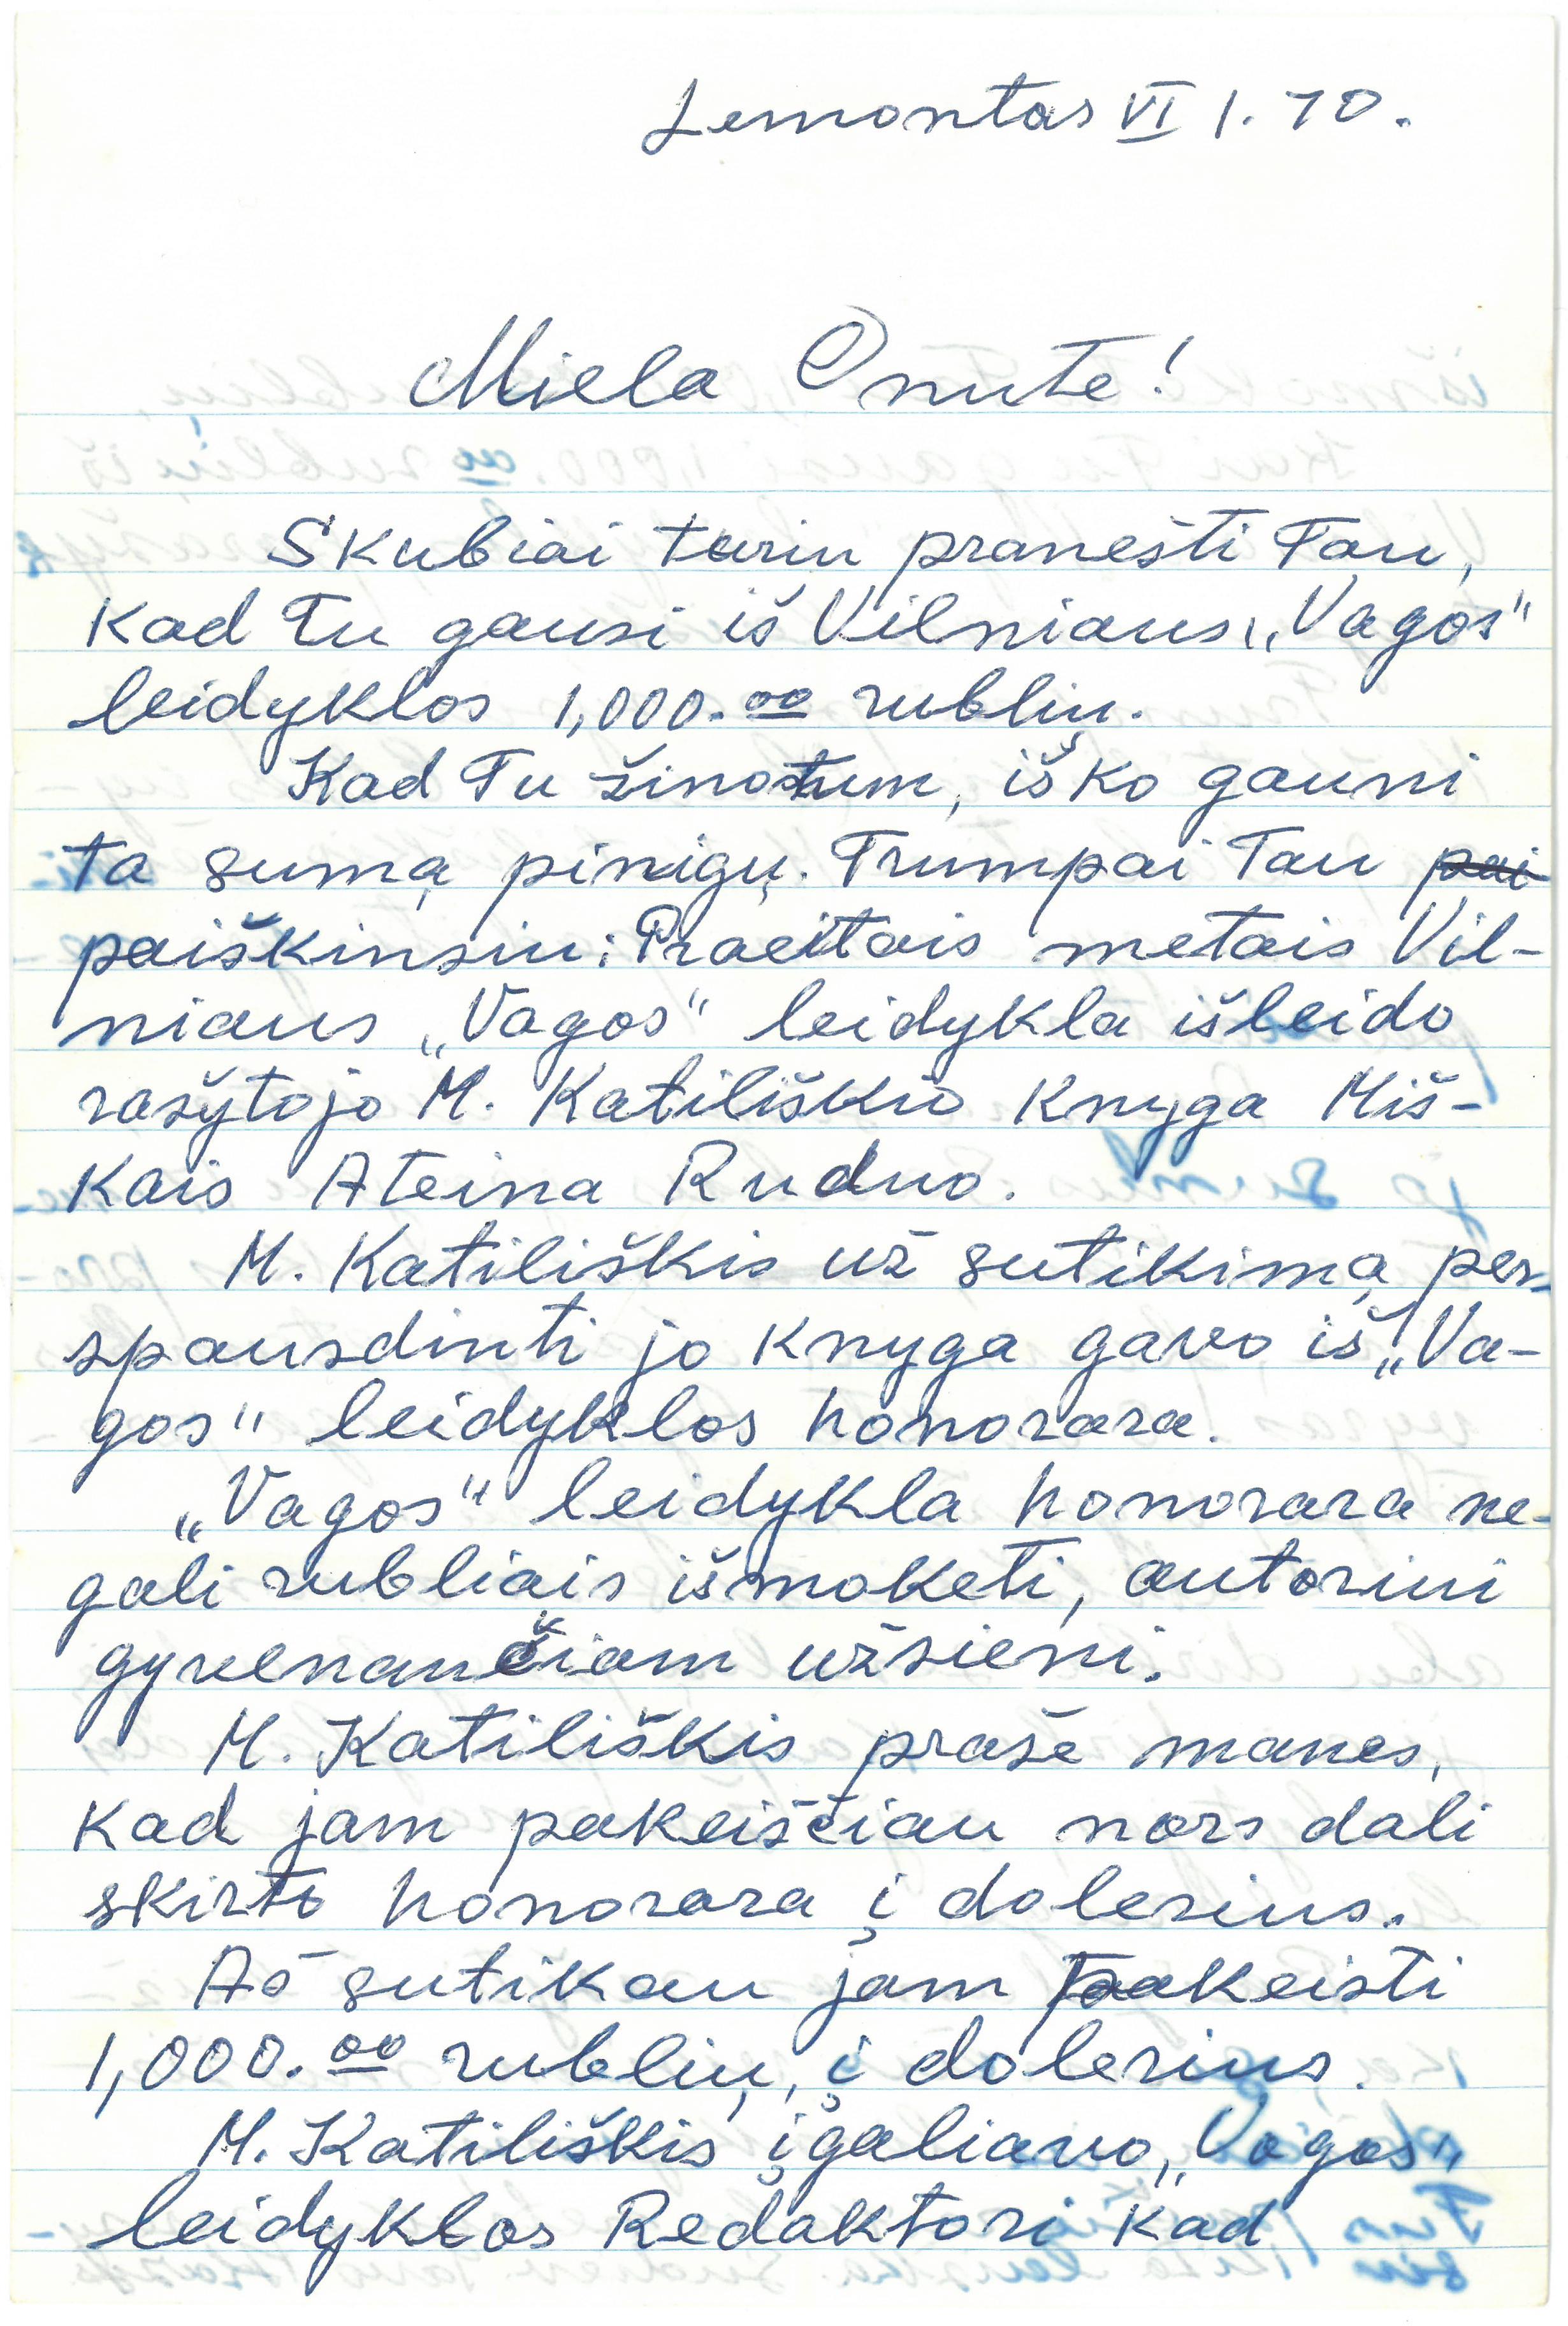 Lemontas VI 1. 70.
Miela Onute!
Skubiai turiu pranešti Tau,
kad Tu gausi iš Vilniaus, „Vagos"
leidyklos 1,000.00 rublių.
Kad Tu žinotum, iš ko gauni
ta sumą pinigų. Trumpai Tau pai
paiškinsiu: Praeitais metais Vil-
niaus „Vagos" leidykla išleido
rašytojo M. Katiliškio knyga Miš-
kais Ateina Ruduo.
M. Katiliškis už sutikimą per-
spausdinti jo knyga gavo iš „Va-
gos" leidyklos honorara.
„Vagos" leidykla honorara ne-
gali rubliais išmoketi, autoriui
gyvenančiam užsieni.
M. Katiliškis praše manes,
kad jam pakeiščiau nors dali
skirto honorara į dolerius.
Aš sutikau jam pakeisti
1,000.00 rublių, į dolerius.
M. Katiliškis įgaliavo, „Vagos"
leidyklos Redaktori kad